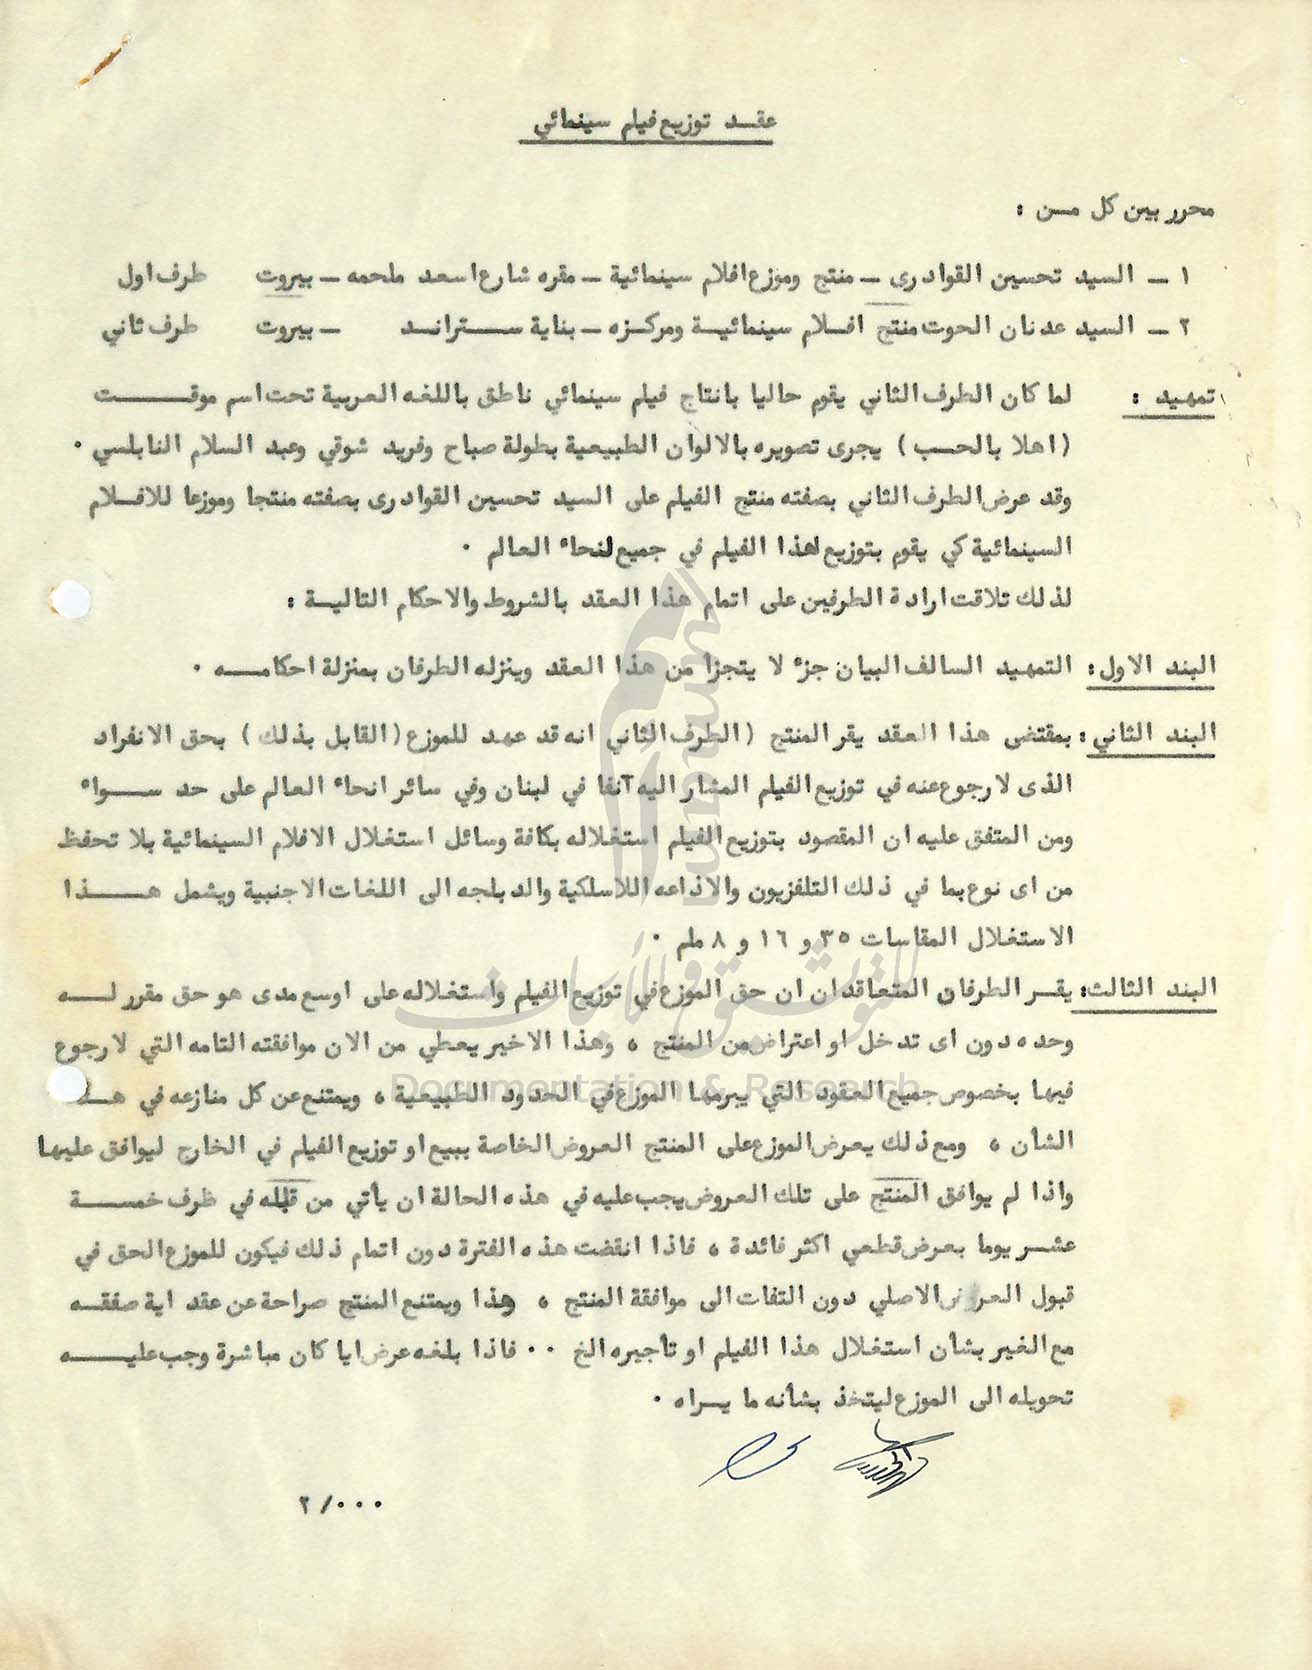 عقد توزيع فيلم سينمائي
محرر بين كل من :
١ - السيد تحسين القوادرى - منتج وموزع افلام سينمائية - مقره شارع اسعد ملحمه - بيروت طرف اول
٢ - السيد عدنان الحوت منتج افلام سينمائية ومركزه - بناية ستراند - بيروت طرف ثاني
تمهيد : لما كان الطرف الثاني يقوم حاليا بانتاج فيلم سينمائي ناطق باللغه العربية تحت اسم موقت
( اهلا بالحب ) يجرى تصويره بالالوان الطبيعية بطولة صباح وفريد شوقي وعبد السلام النابلسي ٠
وقد عرض الطرف الثاني بصفته منتج الفيلم على السيد تحسين القوادرى بصفته منتجا وموزعا للافلام
السينمائية كي يقوم بتوزيع لهذا الفيلم في جميع انحاء العالم ٠
لذلك تلاقت ارادة الطرفين على اتمام هذا العقد بالشروط والاحكام التالية :
البند الاول : التمهيد السالف البيان جزء لا يتجزا من هذا العقد وينزله الطرفان بمنزلة احكامه ٠
البند الثاني : بمقتضى هذا العقد يقر المنتج ( الطرف الثاني انه قد عهد للموزع ( القابل بذلك ) بحق الانفراد
الذى لا رجوع عنه في توزيع الفيلم المشار اليه آنفا في لبنان وفي سائر انحاء العالم على حد سواء
ومن المتفق عليه ان المقصود بتوزيع الفيلم استغلاله بكافة وسائل استغلال الافلام السينمائية بلا تحفظ
من اى نوع بما في ذلك التلفزيون والاذاعه اللاسلكية والدبلجه الى اللغات الاجنبية ويشمل هذا
الاستغلال المقاسات ٣٥ و ١٦ و ٨ ملم ٠
البند الثالث : يقر الطرفان المتعاقدان ان حق الموزع في توزيع الفيلم واستغلاله على اوسع مدى هو حق مقرر له
وحده دون اى تدخل او اعتراض من المنتج ، وهذا الاخير يعطي من الان موافقته التامه التي لا رجوع
فيها بخصوص جميع العقود التي يبرمها الموزع في الحدود الطبيعية ، ويمتنع عن كل منازعه في هذا
الشأن ، ومع ذلك يعرض الموزع على المنتج العروض الخاصة ببيع او توزيع الفيلم في الخارج ليوافق عليها
واذا لم يوافق المنتج على تلك العروض يجب عليه في هذه الحالة ان يأتي من قبله في ظرف خمسة
عشر يوما بعرض قطعي اكثر فائدة ، فاذا انقضت هذه الفترة دون اتمام ذلك فيكون للموزع الحق في
قبول العرض الاصلي دون التفات الى موافقة المنتج ، هذا ويمتنع المنتج صراحة عن عقد اية صفقه
مع الغير بشأن استغلال هذا الفيلم او تأجيره الخ ٠٠ فاذا بلغه عرض ايا كان مباشرة وجب عليه
تحويله الى الموزع ليتخذ بشأنه ما يراه ٠
٢/٠٠٠
UMAM
للتوثيق والأبحاث
Documentation & Research